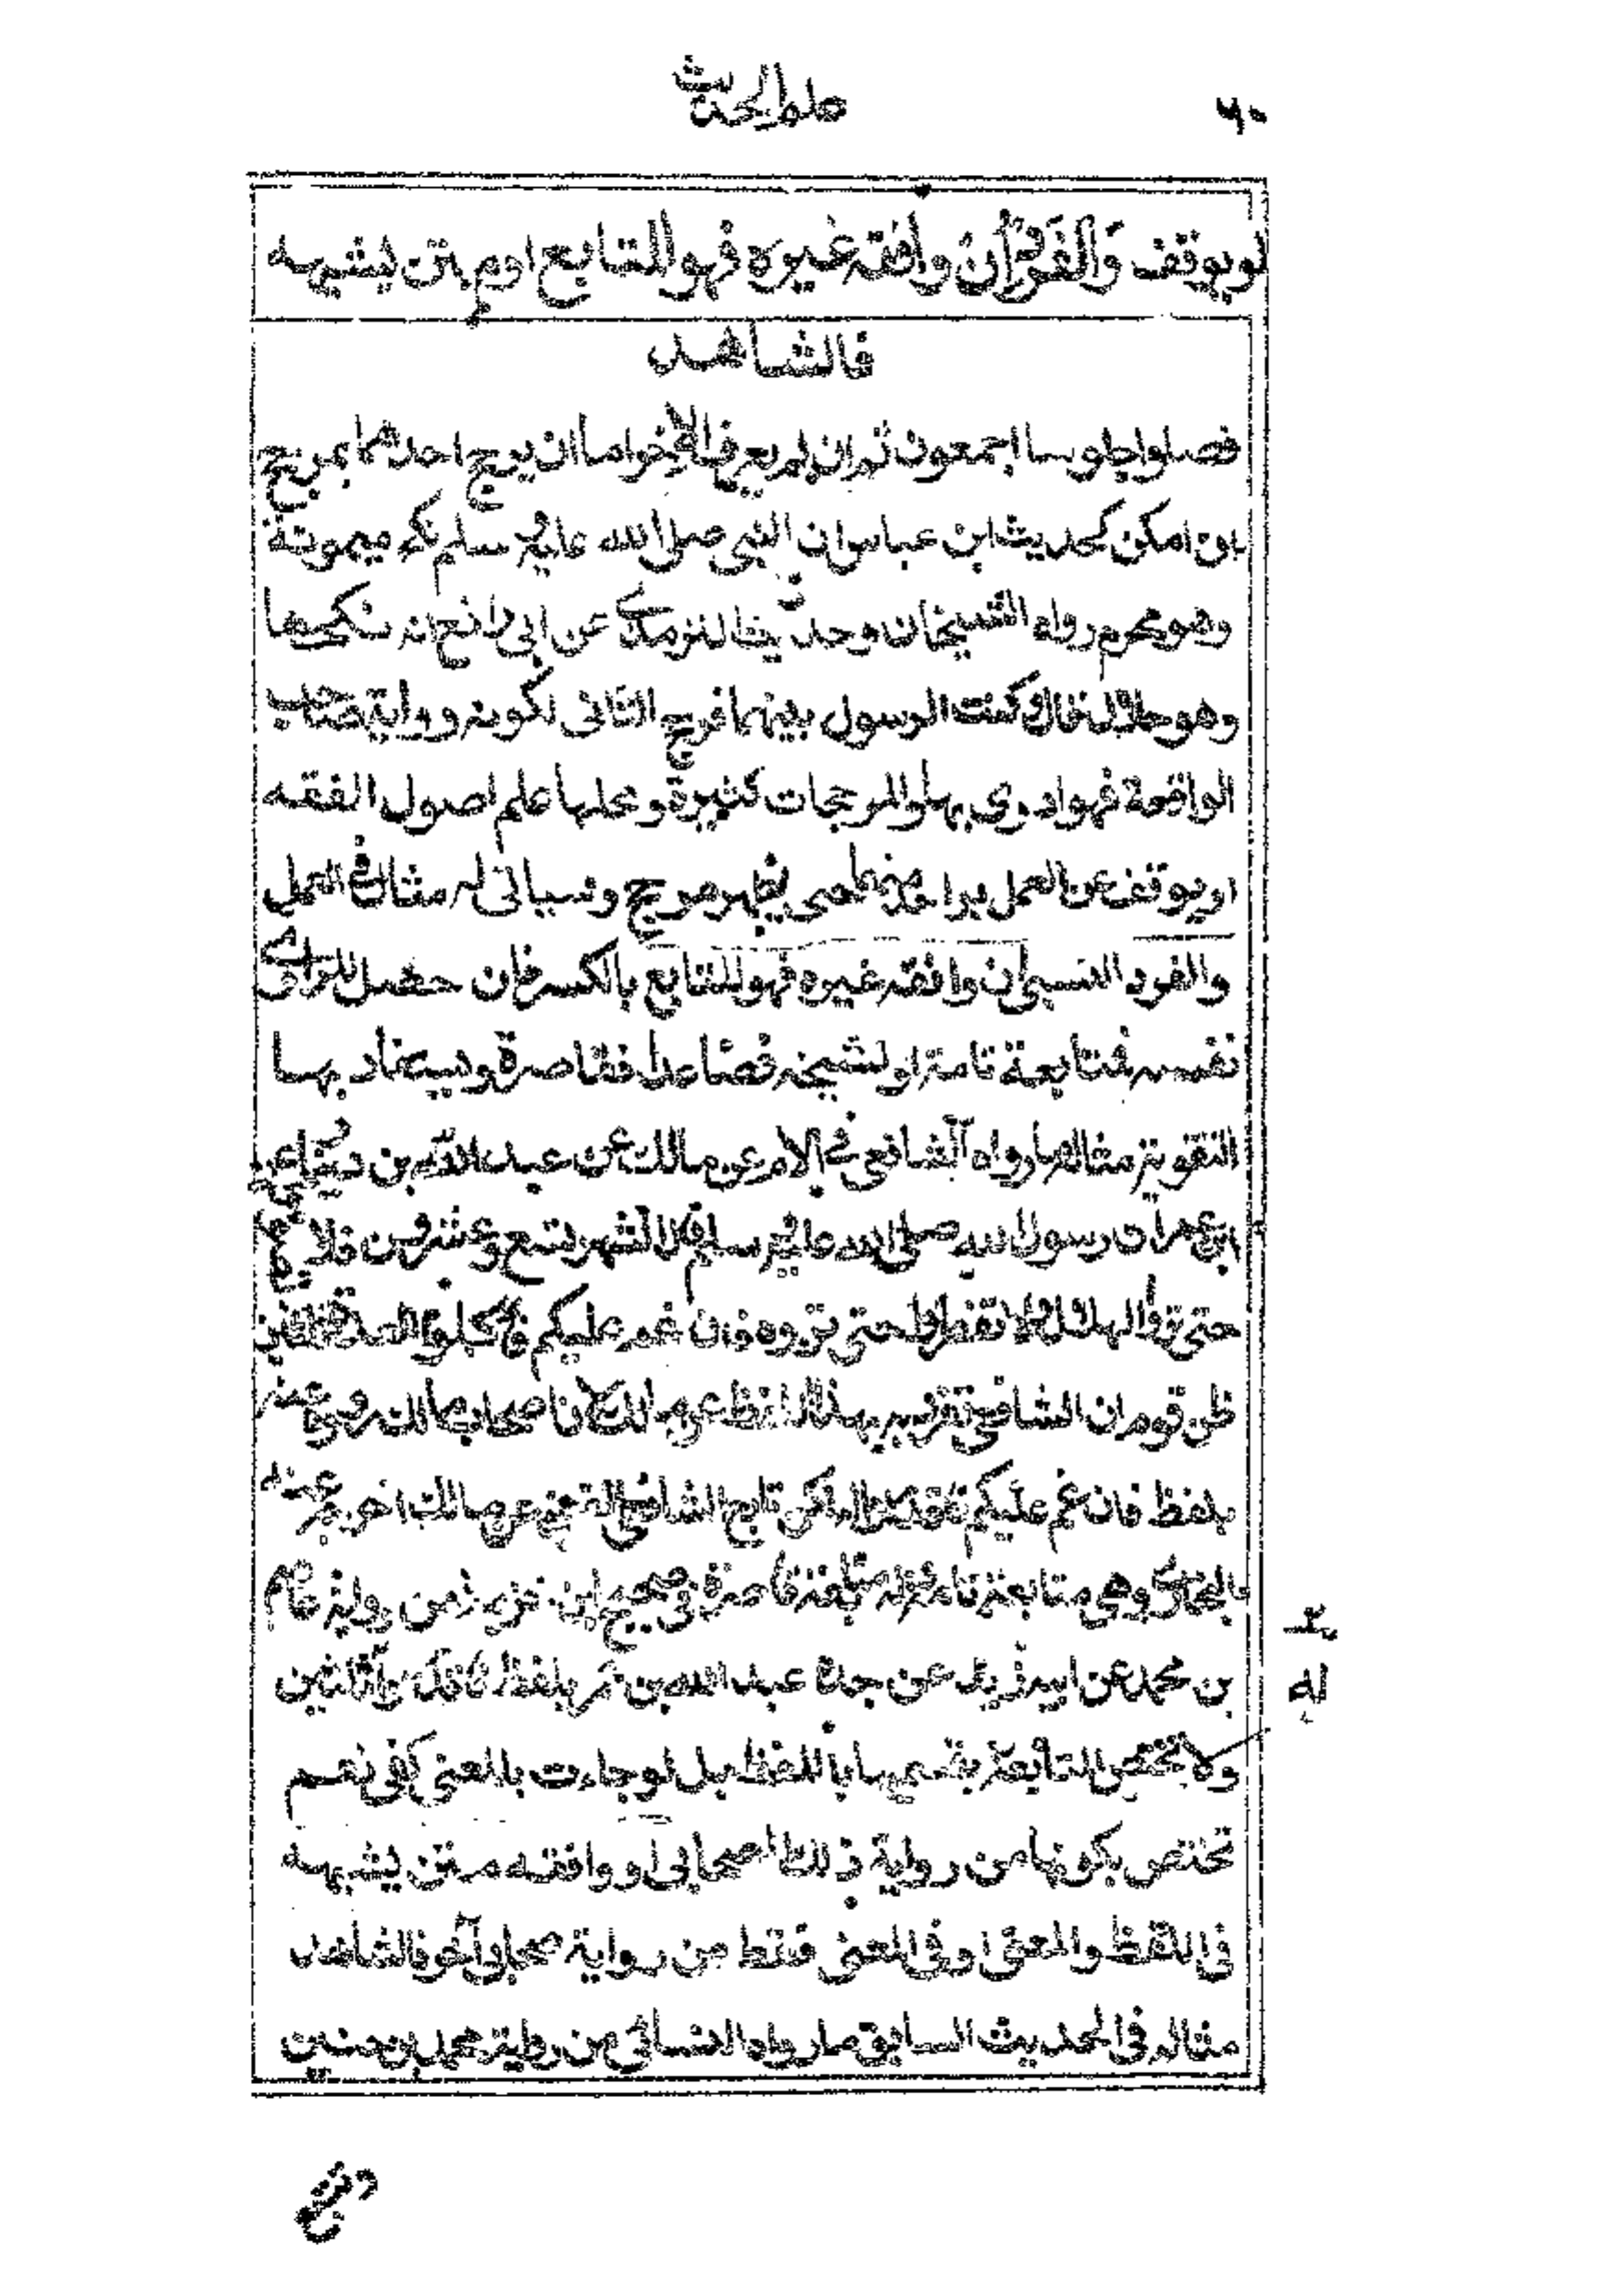 ٦٠
علم الحديث
او يوقف والفرد ان وافقه غيره فهو المتابع او متن يشبهه
فالشاهد
فصلوا جلوسا اجمعون ثم ان لم يعرف الاخر اما ان يرجح احدهما بمرجح
ان امكن كحديث ابن عباس ان النبي صلى الله عليه وسلم نكح ميمونة
وهو محرم رواه الشيخان وحديث الترمذي عن ابي رافع انه نكحها
وهو حلال قال وكنت الرسول بينهما فرجح الثاني لكونه رواية صاحب
الواقعة فهو ادرى بها والمرجحات كثيرة ومحلها علم اصول الفقه
او يوقف عن العمل بواحد منهما حتى يظهر مرجح وسياتي له مثال في العمل
والفرد النسبي ان وافقه غيره فهو المتابع بالكسر فان حصل للراوي
نفسه فمتابعة تامة او لشيخه فصاعدا فقاصرة ويستفاد بها
التقوية مثاله ما رواه الشافعي في الام عن مالك عن عبد الله بن دينار عن
ابن عمر ان رسول الله صلى الله عليه وسلم قال الشهر تسع وعشرون فلا تصوموا
حتى تروا الهلال ولا تفطروا حتى تروه فان غم عليكم فاكملوا العدة ثلاثين
ظن قوم ان الشافعي تفرد به بهذا اللفظ عن مالك لان اصحاب مالك رووه عنه
بلفظ فان غم عليكم فاقدروا له لكن تابع الشافعي القعنبي عن مالك اخرجه عنه
البخاري وهي متابعة تامة وله متابعة قاصرة في صحيح ابن خزيمة من رواية عاصم
بن محمد عن ابيه زيد عن جده عبد الله بن عمر بلفظ فاكملوا ثلاثين
ولا تختص المتابعة بقسميها باللفظ بل لو جاءت بالمعنى كفى نعم
تختص بكونها من رواية ذلك الصحابي او وافقه متن يشبهه
في اللفظ والمعنى او في المعنى فقط من رواية صحابي آخر فالشاهد
مثاله في الحديث السابق ما رواه النسائي من رواية محمد بن حنين
له